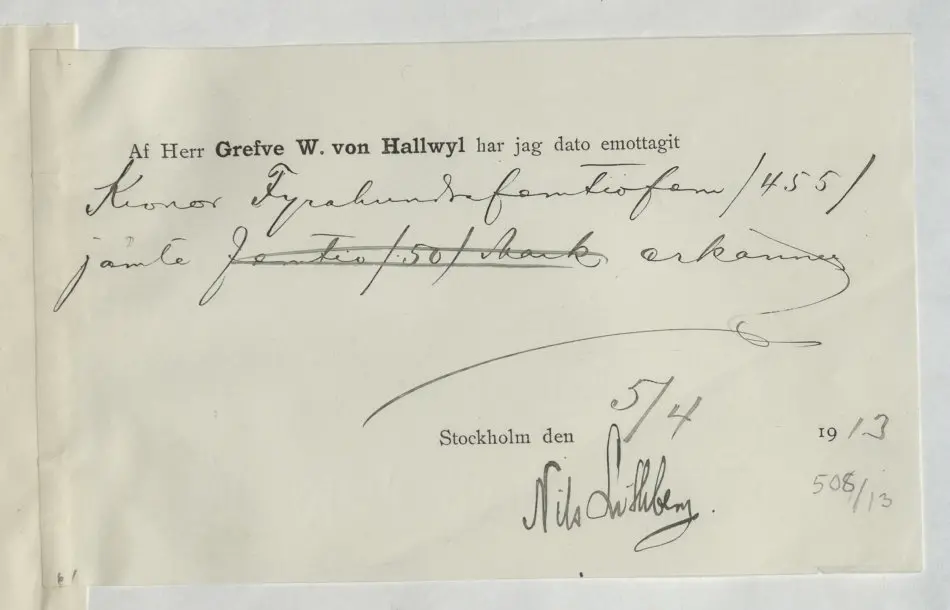 Af Herr Grefve W. von Hallwyl har jag dato emottagit
Kronor Fyrahundrafemtiofem /455/
jämte femtio /50/ Mark erkännes
5/4
Stockholm den 1913
Nils Lithberg.
508/13